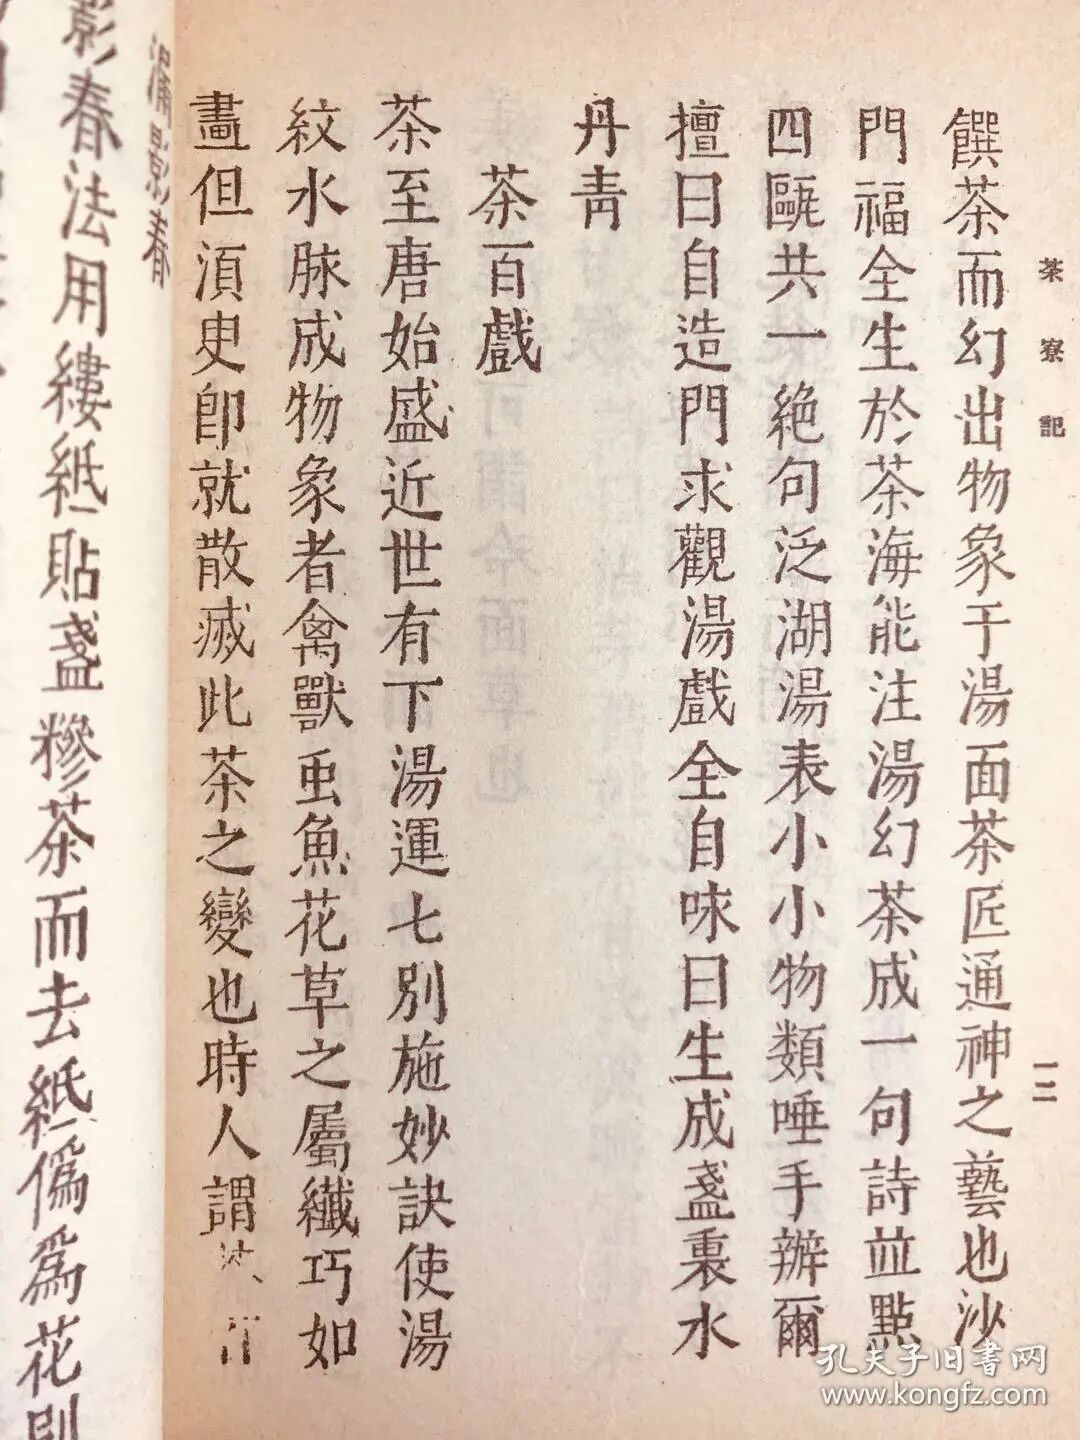 茶寮記
一二
饌茶而幻出物象于湯面茶匠通神之藝也沙
門福全生於茶海能注湯幻茶成一句詩並點
四甌共一絶句泛湖湯表小小物類唾手辦爾
檀曰自造門求觀湯戲全自咏曰生成盞裏水
丹青
茶百戲
茶至唐始盛近世有下湯運七別施妙訣使湯
紋水脉成物象者禽獸虫魚花草之屬纖巧如
畫但須史卽就散滅此茶之變也時人謂
漏影春
影春法用縷紙貼盞糝茶而去紙僞爲花別
孔夫子旧書网
www.kongfz.com